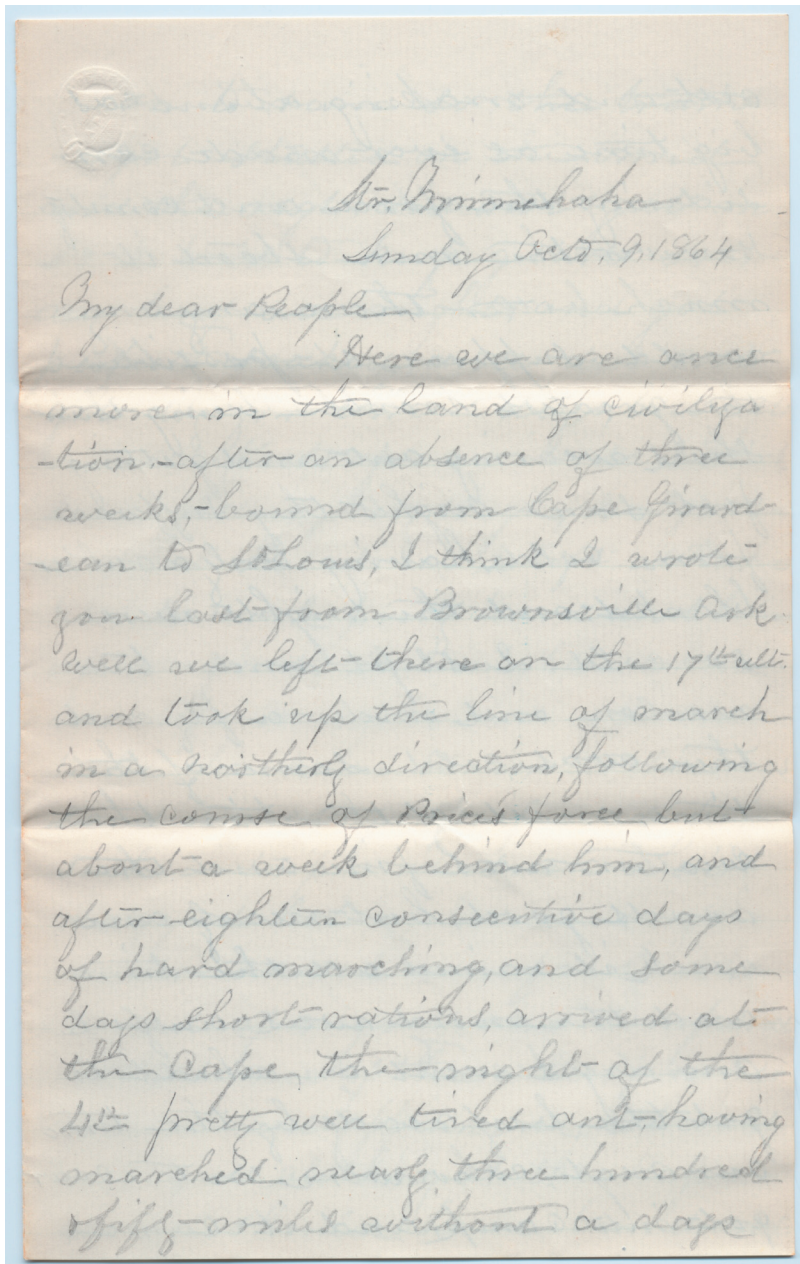 Str. Minnehaha
Sunday Octo. 9. 1864
My dear People
Here we are once
more in the land of civiliza
-tion, - after an absence of three
weeks, - bound from Cape Girard-
-eau to St Louis, I think I wrote
you last from Brownsville Ark.
Well we left there on the 17th ult.
and took up the line of march
in a northerly direction, following
the course of Price's force but
about a week behind him, and
after eighteen consecutive days
of hard marching, and some
days short rations, arrived at
the Cape the night of the
4th pretty well tired out, having
marched nearly three hundred
& fifty miles without a days